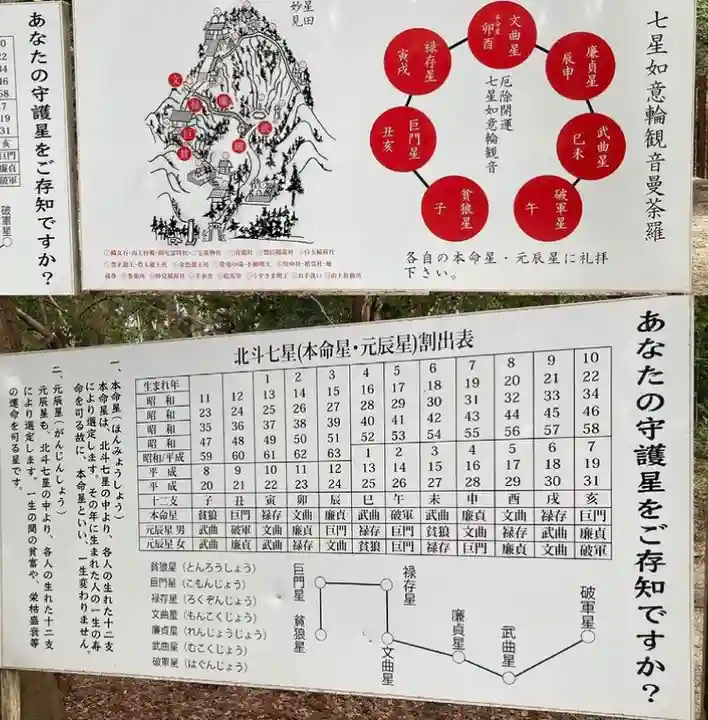 あなたの守護星をご存知ですか？
破軍星
星田
妙見
七星如意輪観音曼荼羅
文曲星
卯酉
禄存星
寅戌
廉貞星
辰申
巨門星
丑亥
武曲星
巳未
貪狼星
子
破軍星
午
厄除開運
七星如意輪観音
各自の本命星・元辰星に礼拝
下さい。
あなたの守護星をご存知ですか？
北斗七星(本命星・元辰星)割出表
生まれ年 1 2 3 4 5 6 7 8 9 10
昭和 11 12 13 14 15 16 17 18 19 20 21 22
昭和 23 24 25 26 27 28 29 30 31 32 33 34
昭和 35 36 37 38 39 40 41 42 43 44 45 46
昭和 47 48 49 50 51 52 53 54 55 56 57 58
昭和/平成 59 60 61 62 63 1 2 3 4 5 6 7
平成 8 9 10 11 12 13 14 15 16 17 18 19
平成 20 21 22 23 24 25 26 27 28 29 30 31
十二支 子 丑 寅 卯 辰 巳 午 未 申 酉 戌 亥
本命星 貪狼 巨門 禄存 文曲 廉貞 武曲 破軍 武曲 廉貞 文曲 禄存 巨門
元辰星 男 武曲 破軍 文曲 廉貞 巨門 禄存 巨門 貪狼 文曲 廉貞 武曲 廉貞
元辰星 女 武曲 廉貞 武曲 禄存 文曲 貪狼 巨門 禄存 巨門 廉貞 文曲 破軍
一、本命星（ほんみょうしょう）
本命星は、北斗七星の中より、各人の生れた十二支
により選定します。その年に生まれた人の一生の寿
命を司る故に、本命星といい、一生変わりません。
二、元辰星（がんじんしょう）
元辰星も、北斗七星の中より、各人の生れた十二支
により選定します。一生の間の貧富や、栄枯盛衰等
の運命を司る星です。
貪狼星（とんろうしょう）
巨門星（こもんじょう）
禄存星（ろくぞんじょう）
文曲星（もんこくじょう）
廉貞星（れんじょうじょう）
武曲星（むこくじょう）
破軍星（はぐんじょう）
巨門星
貪狼星
禄存星
文曲星
廉貞星
武曲星
破軍星